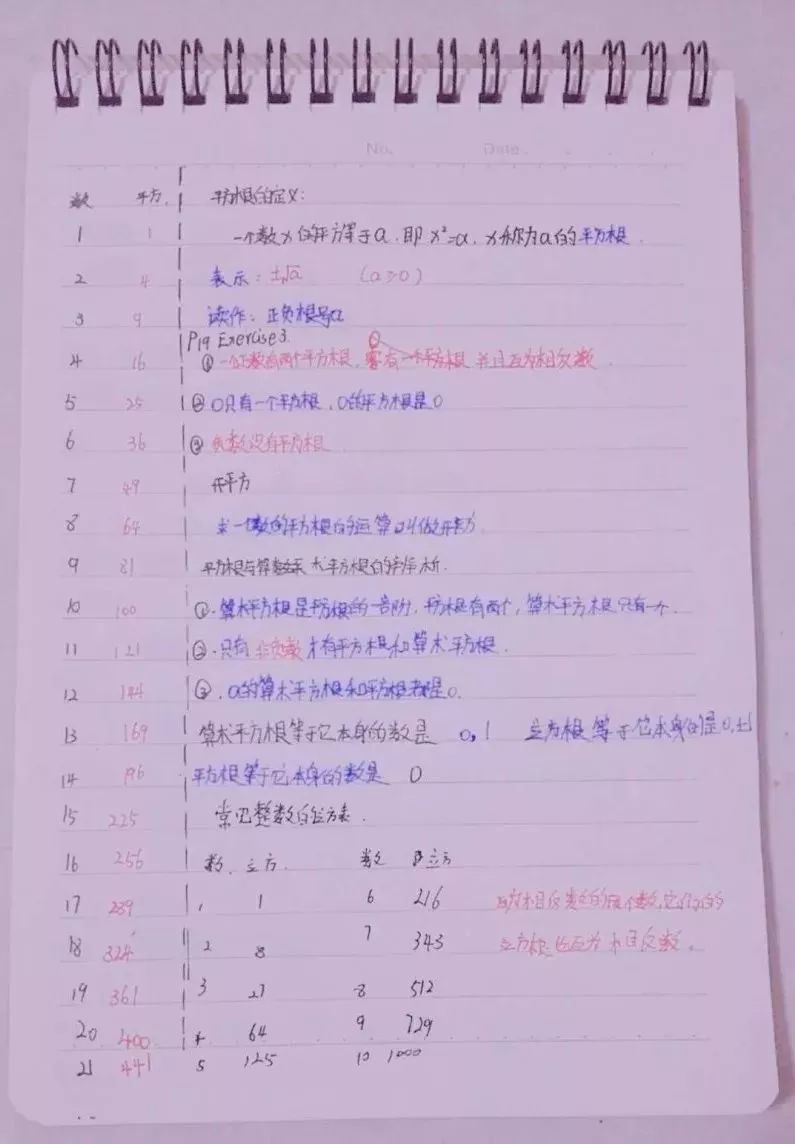 No. Date.
数 平方. 平方根的定义:
1 1 一个数x的平方等于a,即x²=a,x称为a的平方根.
2 4 表示:±√a (a≥0)
3 9 读作:正负根号a
P19 Exercise 3.
4 16 ①一个正数有两个平方根, 有一个平方根 并且互为相反数
5 25 ②0只有一个平方根,0的平方根是0
6 36 ③负数没有平方根
7 49 开平方
8 64 求一个数的平方根的运算叫做开平方.
9 81 平方根与算数 术平方根的
10 100 ①.算术平方根是平方根的一部 ,平方根有两个,算术平方根只有一个.
11 121 ②.只有非负数才有平方根和算术平方根.
12 144 ③.0的算术平方根和平方根都是0.
13 169 算术平方根等于它本身的数是 0,1 立方根等于它本身的是0,±1
14 196 平方根等于它本身的数是 0
15 225 常见整数的立方表.
16 256 数. 立方. 数 立方
17 289 1 1 6 216 互为相反数的两个数,它们的
18 324 2 8 7 343 立方根也互为相反数.
19 361 3 27 8 512
20 400 4 64 9 729
21 441 5 125 10 1000